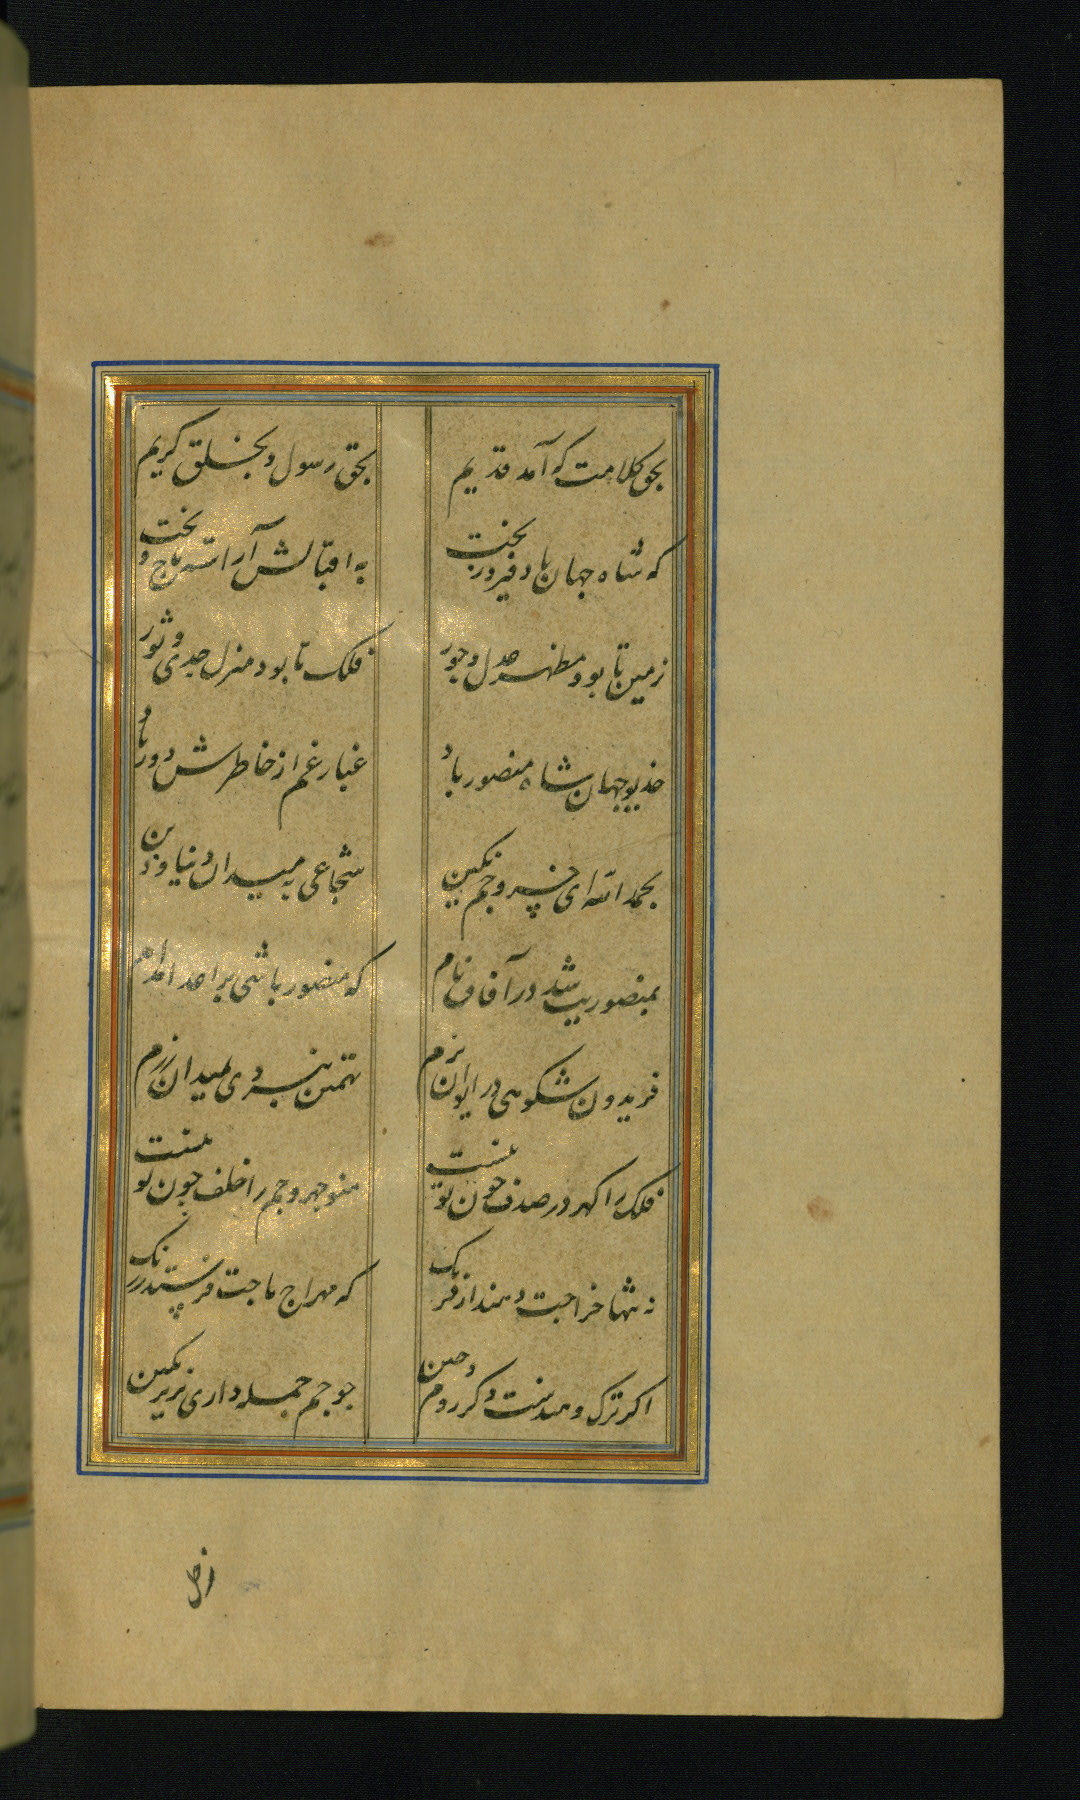 بحق کلامت که آمد قدیم
بحق رسول و بخلق کریم
که شاه جهان باد فیروز بخت
به اقبالش آراسته تاج و تخت
زمین تا بود مظهر عدل و جور
فلک تا بود منزل جدی و ثور
خدیو جهان شاه منصور باد
غبار غم از خاطرش دور باد
بحمد الله ای خسرو جم نکین
شجاعی به میدان دنیا و دین
بمنصوریت شد در آفاق نام
که منصور باشی بر اعدا مدام
فریدون شکوهی در ایوان بزم
تهمتن نبردی بمیدان رزم
فلک را کهر در صدف چون تو نیست
منوچهر و جم را خلف چون تو نیست
نه تنها خراجت دهند از فرنک
که مهراج باجت فرستد ز زنک
اکر ترک و هندست و کر روم و چین
چو جم جمله داری بزیر نکین